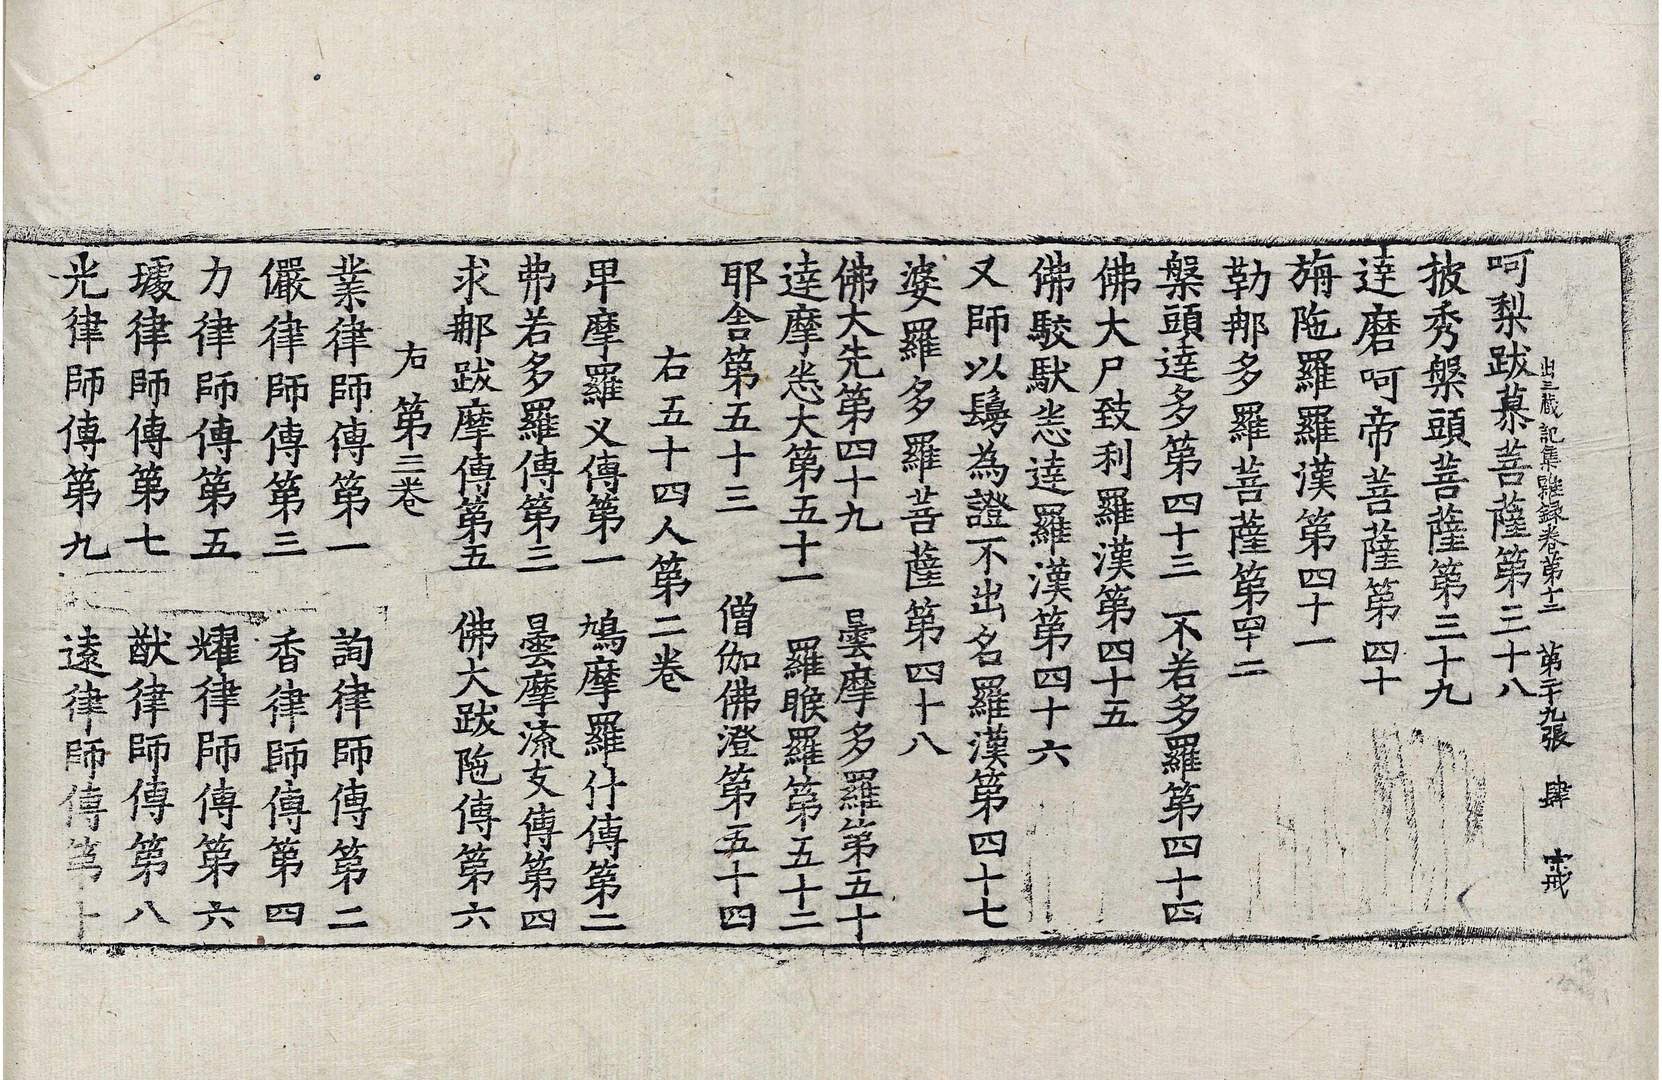 出三蔵記集雜録卷第十二　第二十九張　肆　十戒
呵梨跋慕菩薩第三十八
披秀槃頭菩薩第三十九
達磨呵帝菩薩第四十
旃陁羅羅漢第四十一
勒那多羅菩薩第四十二
槃頭達多第四十三　不若多羅第四十四
佛大尸致利羅漢第四十五
佛駮䭾悉達羅漢第四十六
又師以鬘為證不出名羅漢第四十七
婆羅多羅菩薩第四十八
佛大先第四十九　曇摩多羅第五十
達摩悉大第五十一　羅睺羅第五十二
耶舍第五十三　僧伽佛澄第五十四
右五十四人第二卷
卑摩羅义傳第一　鳩摩羅什傳第二
弗若多羅傳第三　曇摩流支傳第四
求那跋摩傳第五　佛大跋陁傳第六
右第三卷
業律師傳第一　詢律師傳第二
儼律師傳第三　香律師傳第四
力律師傳第五　耀律師傳第六
璩律師傳第七　猷律師傳第八
光律師傳第九　遠律師傳第十